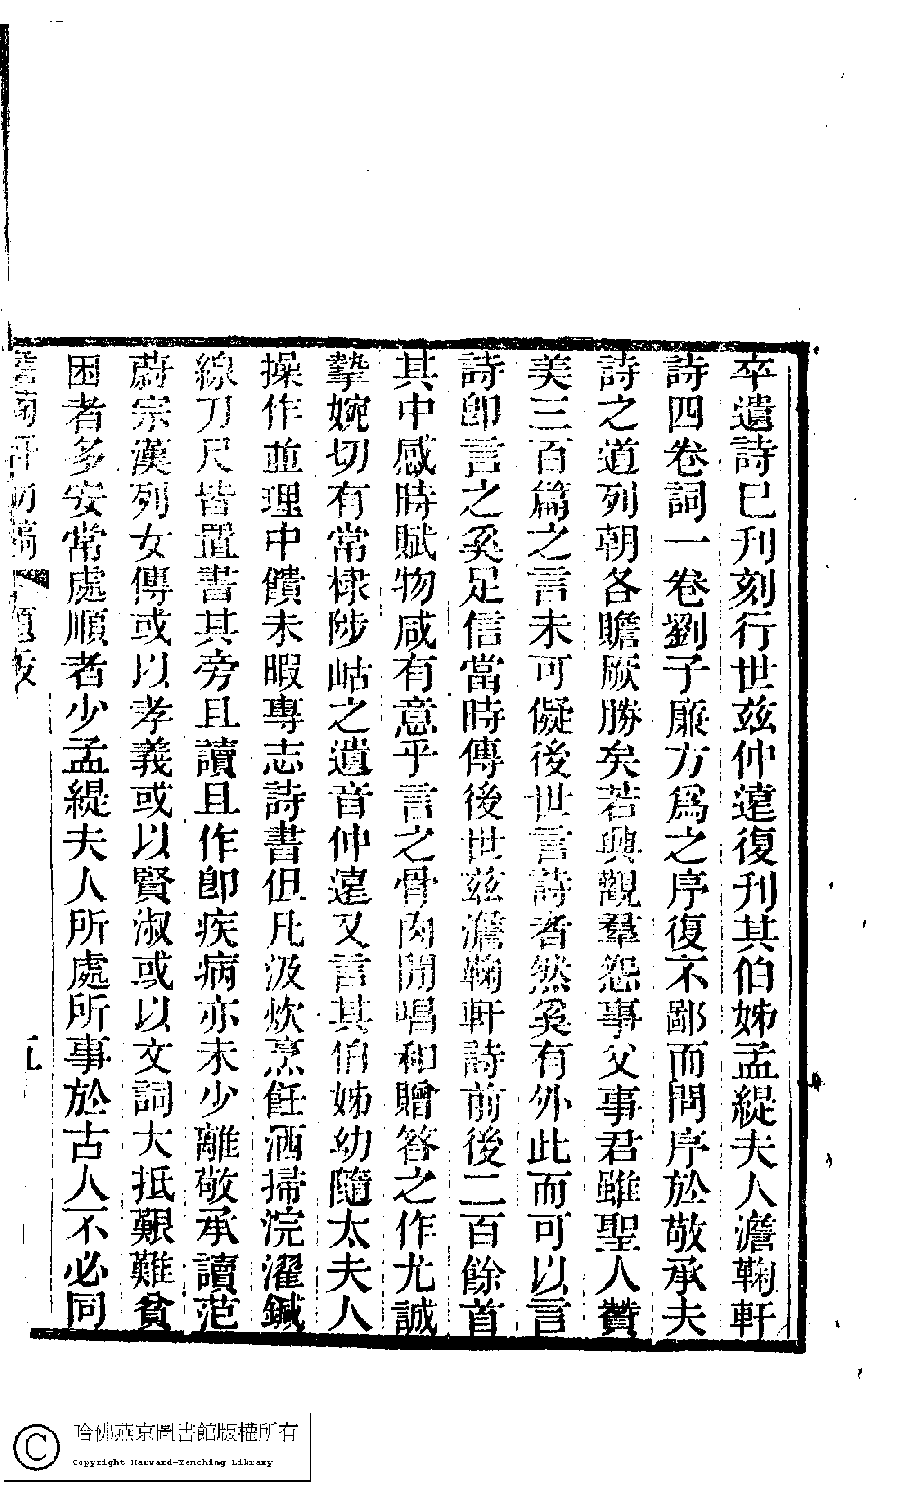 卒遺詩已刊刻行世茲仲遠復刊其伯姊孟緹夫人澹鞠軒
詩四卷詞一卷劉子廉方爲之序復不鄙而問序於敬承夫
詩之道列朝各贍厥勝矣若興觀羣怨事父事君雖聖人贊
美三百篇之言未可儗後世言詩者然奚有外此而可以言
詩卽言之奚足信當時傳後世茲澹鞠軒詩前後二百餘首
其中感時賦物咸有意乎言之骨肉閒唱和贈答之作尤誠
摯婉切有常棣陟岵之遺音仲遠又言其伯姊幼隨太夫人
操作並理中饋未暇專志詩書但凡汲炊烹飪洒掃浣濯鍼
線刀尺皆置書其旁且讀且作卽疾病亦未少離敬承讀范
蔚宗漢列女傳或以孝義或以賢淑或以文詞大抵艱難貧
困者多安常處順者少孟緹夫人所處所事於古人不必同
五
哈佛燕京圖書館版權所有
Copyright Harvard-Yenching Library